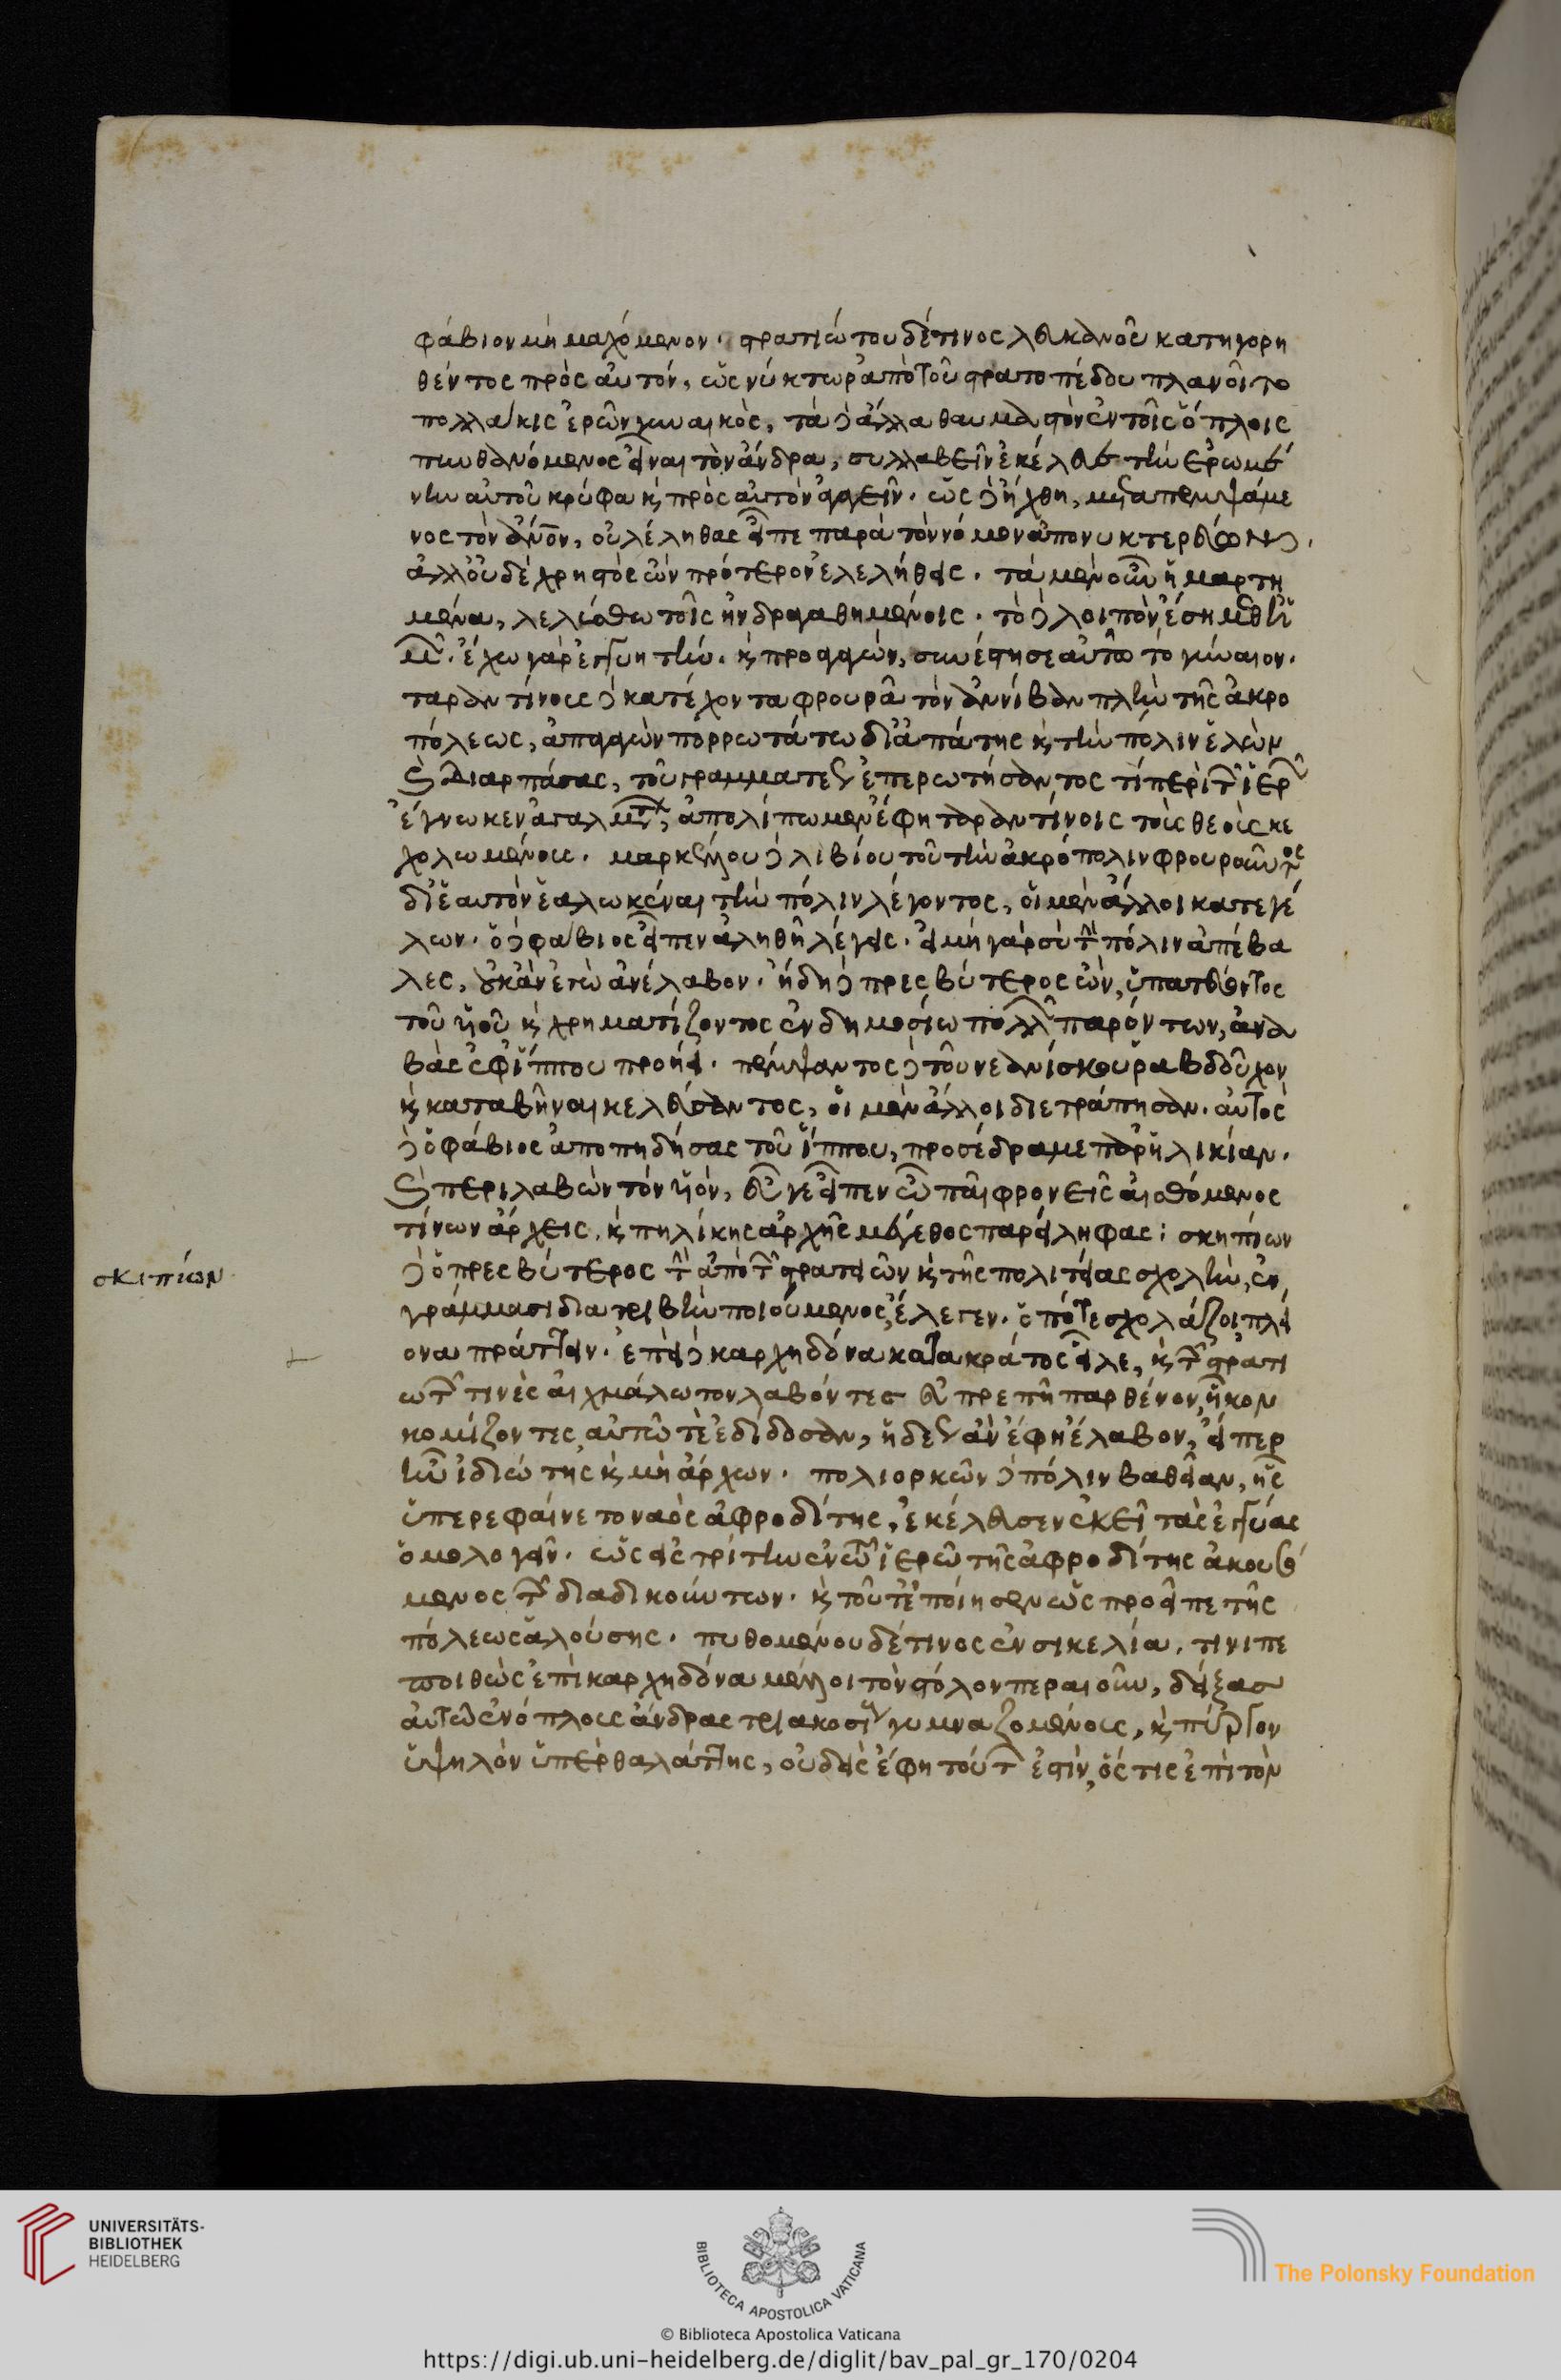 φάβιον μὴ μαχόμενον. στρατιώτου δέ τινος λευκανοῦ κατηγορη
θέντος πρὸς αὐτόν, ὡς νύκτωρ ἀπὸ τοῦ στρατοπέδου πλανοῖτο
πολλάκις ἐρῶν γυναικὸς, τὰ δὲ ἄλλα θαυμαστὸν ἐν τοῖς ὅπλοις
πυνθανόμενος εἶναι τὸν ἄνδρα, συλλαβεῖν ἐκέλευσε τὴν ἐρωμέ
νην αὐτοῦ κρύφα καὶ πρὸς αὐτὸν ἀγαγεῖν. ὡς δὲ ἤχθη, μεταπεμψάμε
νος τὸν ἄνον, οὐ λέληθας εἶπε παρὰ τὸν νόμον ἀπονυκτερεύων.
ἀλλ' οὐδὲ χρηστὸς ὢν πρότερον ἐλελήθεις. τὰ μὲν οὖν ἡμαρτη
μένα, λελύσθω τοῖς ἠνδραγαθημένοις. τὸ δὲ λοιπὸν ἔσῃ μεθ' ἡ
μῶν. ἔχω γὰρ ἐγγυητήν. καὶ προαγαγών, συνέστησε αὐτῷ τὸ γύναιον.
ταραντίνους δὲ κατέχοντα φρουρᾷ τὸν ἀννίβαν πλὴν τῆς ἀκρο
πόλεως, ἀπαγαγὼν πορρωτάτω δι' ἀπάτης καὶ τὴν πόλιν ἑλὼν
καὶ διαρπάσας, τοῦ γραμματέως ἐπερωτήσαντος τί περὶ τῶν ἱερῶν
ἔγνωκεν ἀγαλμάτων, ἀπολίπωμεν ἔφη ταραντίνοις τοὺς θεοὺς κε
χολωμένους. μαρκέλλου δὲ λιβίου τοῦ τὴν ἀκρόπολιν φρουροῦντος
δι' ἑαυτὸν ἑαλωκέναι τὴν πόλιν λέγοντος, οἱ μὲν ἄλλοι κατεγέ
λων. ὁ δὲ φάβιος εἶπεν ἀληθῆ λέγεις. εἰ μὴ γὰρ σὺ τὴν πόλιν ἀπέβα
λες, οὐκ ἂν ἐγὼ ἀνέλαβον. ἤδη δὲ πρεσβύτερος ὢν, ὑπατεύοντος
τοῦ υἱοῦ καὶ χρηματίζοντος ἐν δημοσίω πολλῶν παρόντων, ἀνα
βὰς ἐφ' ἵππου προῄει. πέμψαντος δὲ τοῦ νεανίσκου ῥαβδοῦχον
καὶ καταβῆναι κελεύσαντος, οἱ μὲν ἄλλοι διετράπησαν. αὐτὸς
δὲ ὁ φάβιος ἀποπηδήσας τοῦ ἵππου, προσέδραμε παρ' ἡλικίαν.
καὶ περιλαβὼν τὸν υἱόν, εὖγε εἶπεν ὦ παῖ φρονεῖς αἰσθόμενος
τίνων ἄρχεις, καὶ πηλίκης ἀρχῆς μέγεθος παρείληφας: σκηπίων
σκιπίων
δὲ ὁ πρεσβύτερος τὴν ἀπὸ τῶν στρατειῶν καὶ τῆς πολιτείας σχολὴν, ἐν
γράμμασι διατριβὴν ποιούμενος, ἔλεγεν. ὁπότε σχολάζοι πλεί
ονα πράττειν. ἐπεὶ δὲ καρχηδόνα κατὰ κράτος εἷλε, καὶ τῶν στρατι
ωτῶν τινὲς αἰχμάλωτον λαβόντες εὐπρεπῆ παρθένον, ἧκον
κομίζοντες, αὐτῷ τὲ ἐδίδοσαν, ἡδέως ἂν ἔφη ἔλαβον, εἴπερ
ἦν ἰδιώτης καὶ μὴ ἄρχων. πολιορκῶν δὲ πόλιν βαθεῖαν, ἧς
ὑπερεφαίνετο ναὸς ἀφροδίτης, ἐκέλευσεν ἐκεῖ τὰς ἐγγύας
ὁμολογεῖν. ὡς εἰς τρίτην ἐν τῷ ἱερῷ τῆς ἀφροδίτης ἀκουσό
μενος τῶν διαδικούντων. καὶ τοῦτ' ἐποίησεν ὡς προεῖπε τῆς
πόλεως ἁλούσης. πυθομένου δέ τινος ἐν σικελία, τίνι πε
ποιθὼς ἐπὶ καρχηδόνα μέλλοι τὸν στόλον περαιοῦν, δείξας
αὐτῷ ἐνόπλους ἄνδρας τριακοσίους γυμναζομένους, καὶ πύργον
ὑψηλὸν ὑπὲρ θαλάττης, οὐδεὶς ἔφη τούτων ἐστίν, ὅς τις ἐπὶ τὸν
UNIVERSITÄTS-
BIBLIOTHEK
HEIDELBERG
BIBLIOTECA APOSTOLICA VATICANA
The Polonsky Foundation
© Biblioteca Apostolica Vaticana
https://digi.ub.uni-heidelberg.de/diglit/bav_pal_gr_170/0204